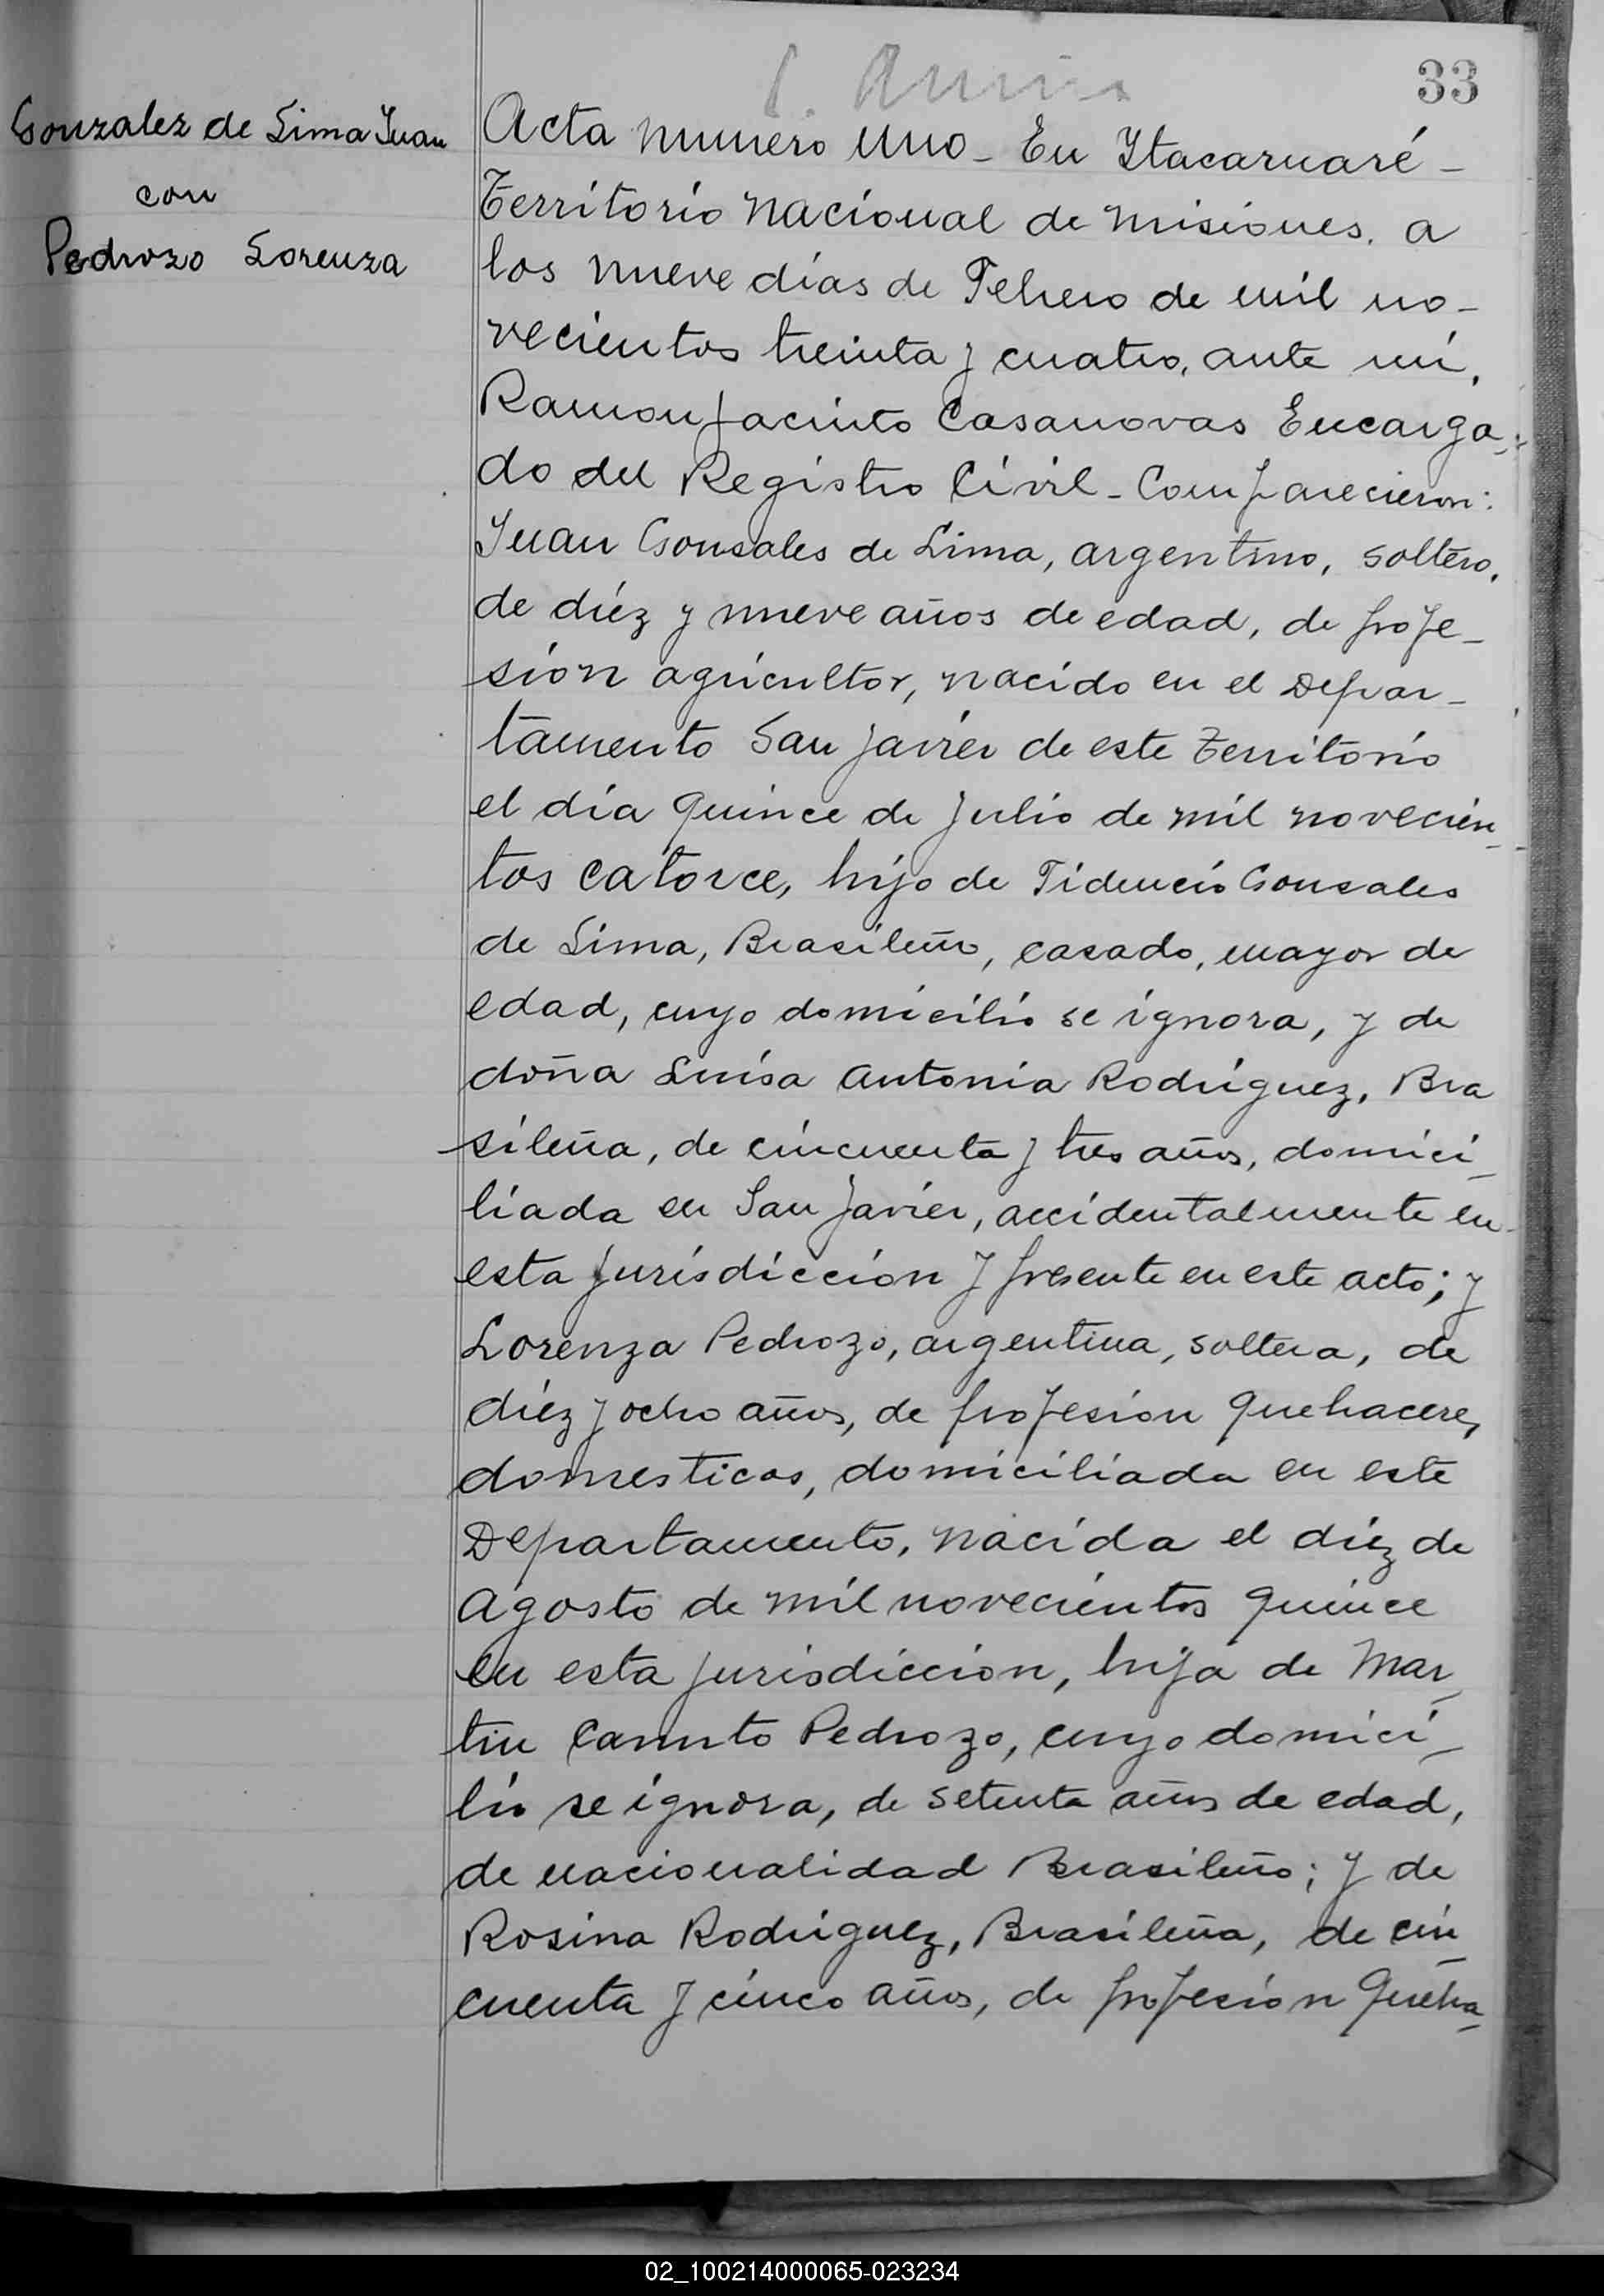 33
Gonzalez de Lima Juan
con
Pedrozo Lorenza
Acta numero uno - En Itacaruaré -
Territorio nacional de misiones, a
los nueve días de Febrero de mil no-
vecientos treinta y cuatro, ante mí,
Ramon Jacinto Casanovas Encarga-
do del Registro Civil - Comparecieron:
Juan Gonsales de Lima, argentino, soltero,
de diéz y nueve años de edad, de profe-
sión agricultor, nacido en el Depar-
tamento San Javier de este Territorio
el día quince de Julio de mil novecien-
tos catorce, hijo de Fidencio Gonsales
de Lima, Brasileño, casado, mayor de
edad, cuyo domicilio se ignora, y de
doña Luisa Antonia Rodriguez, Bra
sileña, de cincuenta y tres años, domici-
liada en San Javier, accidentalmente en
esta jurisdiccion y presente en este acto; y
Lorenza Pedrozo, argentina, soltera, de
diéz y ocho años, de profesión quehaceres
domesticos, domiciliada en este
Departamento, nacida el diéz de
Agosto de mil novecientos quince
en esta jurisdiccion, hija de Mar-
tin Canuto Pedrozo, cuyo domici-
lio se ignora, de setenta años de edad,
de nacionalidad Brasileño; y de
Rosina Rodriguez, Brasileña, de cin-
cuenta y cinco años, de profesión queha-
02_100214000065-023234